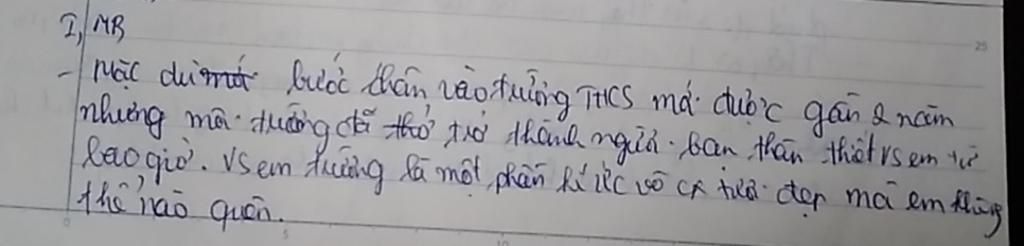 I, MB
- Mặc dù mới bước chân vào trường THCS mới được gần 2 năm
nhưng mái trường đã trở thành người bạn thân thiết vs em từ
bao giờ. Vs em trường là một phần kí ức vô cx tươi đẹp mà em không
thể nào quên.
25
5
10